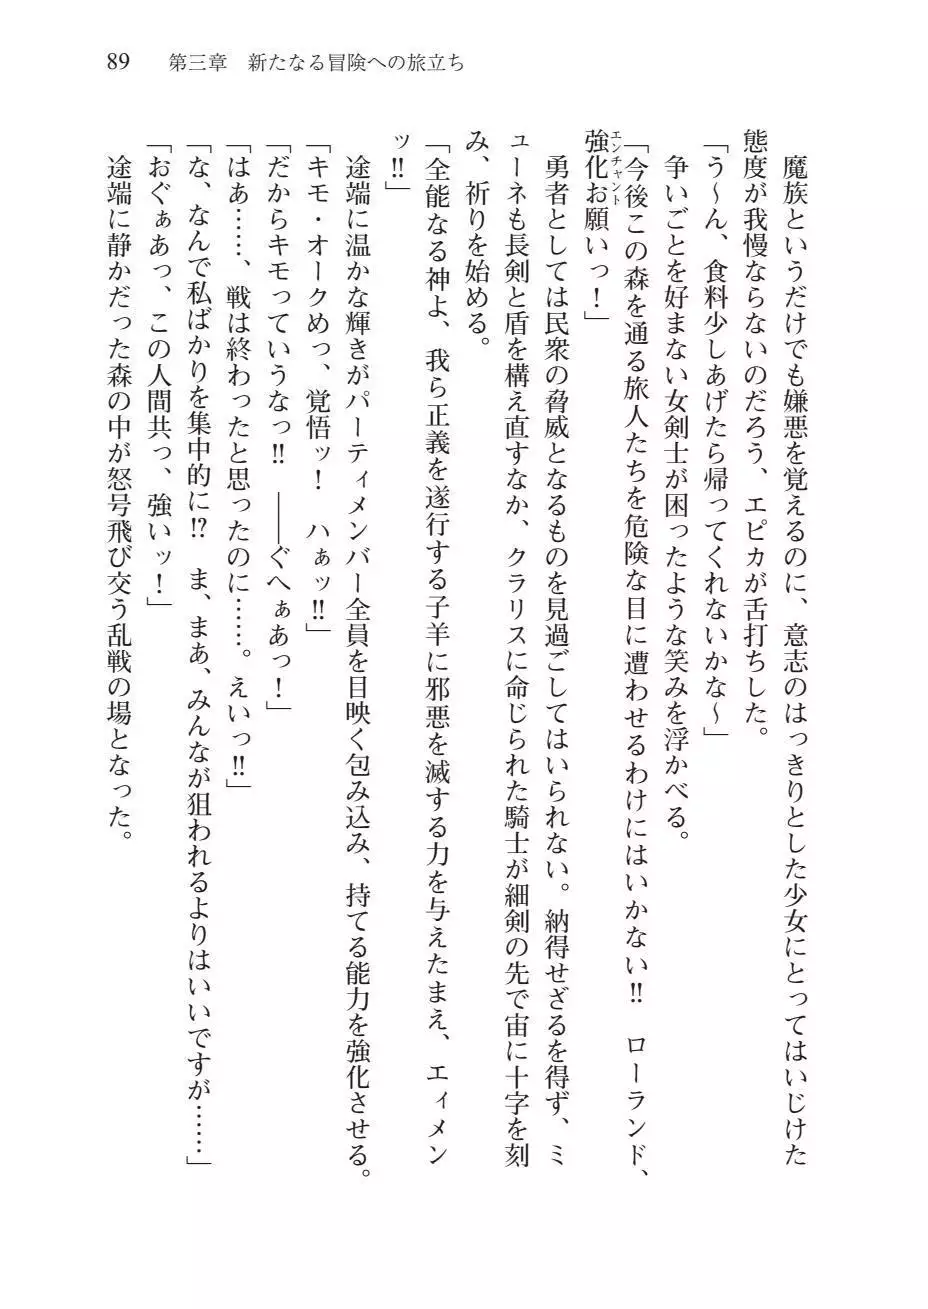 89　第三章　新たなる冒険への旅立ち
　魔族というだけでも嫌悪を覚えるのに、意志のはっきりとした少女にとってはいじけた
態度が我慢ならないのだろう、エピカが舌打ちした。
「う～ん、食料少しあげたら帰ってくれないかな～」
　争いごとを好まない女剣士が困ったような笑みを浮かべる。
「今後この森を通る旅人たちを危険な目に遭わせるわけにはいかない‼　ローランド、
強化エンチャントお願いっ！」
　勇者としては民衆の脅威となるものを見過ごしてはいられない。納得せざるを得ず、ミ
ューネも長剣と盾を構え直すなか、クラリスに命じられた騎士が細剣の先で宙に十字を刻
み、祈りを始める。
「全能なる神よ、我ら正義を遂行する子羊に邪悪を滅する力を与えたまえ、エィメン
ッ‼」
　途端に温かな輝きがパーティメンバー全員を目映く包み込み、持てる能力を強化させる。
「キモ・オークめっ、覚悟ッ！　ハぁッ‼」
「だからキモっていうなっ‼　――ぐへぁあっ！」
「はあ……、戦は終わったと思ったのに……。えいっ‼」
「な、なんで私ばかりを集中的に⁉　ま、まぁ、みんなが狙われるよりはいいですが……」
「おぐぁあっ、この人間共っ、強いッ！」
　途端に静かだった森の中が怒号飛び交う乱戦の場となった。